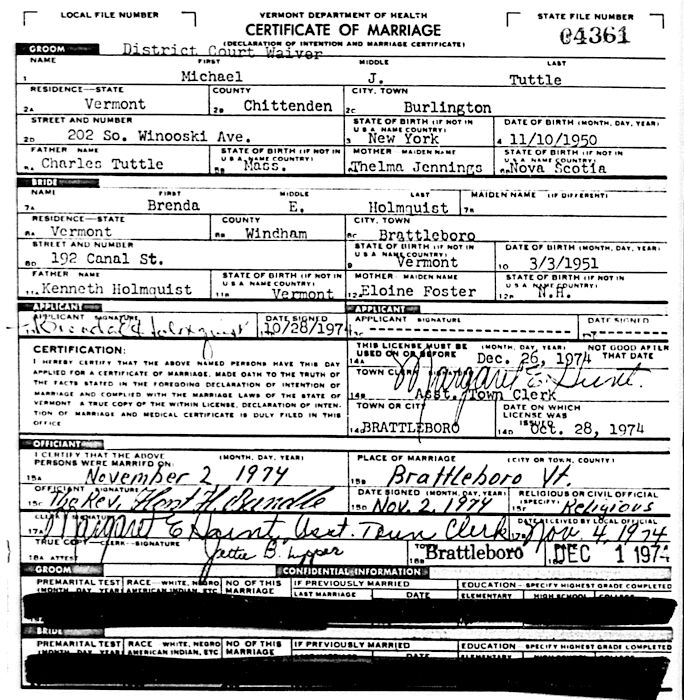 LOCAL FILE NUMBER
VERMONT DEPARTMENT OF HEALTH
CERTIFICATE OF MARRIAGE
(DECLARATION OF INTENTION AND MARRIAGE CERTIFICATE)
STATE FILE NUMBER
04361
GROOM District Court Waiver
NAME FIRST MIDDLE LAST
1 Michael J. Tuttle
RESIDENCE—STATE COUNTY CITY, TOWN
2A Vermont 2B Chittenden 2C Burlington
STREET AND NUMBER STATE OF BIRTH (IF NOT IN U S A NAME COUNTRY) DATE OF BIRTH (MONTH, DAY, YEAR)
2D 202 So. Winooski Ave. 3 New York 4 11/10/1950
FATHER NAME STATE OF BIRTH (IF NOT IN U S A NAME COUNTRY) MOTHER MAIDEN NAME STATE OF BIRTH (IF NOT IN U S A NAME COUNTRY)
Charles Tuttle Mass. Thelma Jennings Nova Scotia
BRIDE
NAME FIRST MIDDLE LAST MAIDEN NAME (IF DIFFERENT)
7A Brenda E. Holmquist 7B
RESIDENCE—STATE COUNTY CITY, TOWN
8A Vermont 8B Windham 8C Brattleboro
STREET AND NUMBER STATE OF BIRTH (IF NOT IN U S A NAME COUNTRY) DATE OF BIRTH (MONTH, DAY, YEAR)
8D 192 Canal St. 9 Vermont 10 3/3/1951
FATHER NAME STATE OF BIRTH (IF NOT IN U S A NAME COUNTRY) MOTHER MAIDEN NAME STATE OF BIRTH (IF NOT IN U S A NAME COUNTRY)
11A Kenneth Holmquist 11B Vermont 12A Eloine Foster 12B N.H.
APPLICANT APPLICANT
APPLICANT SIGNATURE DATE SIGNED APPLICANT SIGNATURE DATE SIGNED
Brenda E. Holmquist 10/28/1974
CERTIFICATION:
I HEREBY CERTIFY THAT THE ABOVE NAMED PERSONS HAVE THIS DAY
APPLIED FOR A CERTIFICATE OF MARRIAGE, MADE OATH TO THE TRUTH OF
THE FACTS STATED IN THE FOREGOING DECLARATION OF INTENTION OF
MARRIAGE AND COMPLIED WITH THE MARRIAGE LAWS OF THE STATE OF
VERMONT A TRUE COPY OF THE WITHIN LICENSE, DECLARATION OF INTEN-
TION OF MARRIAGE AND MEDICAL CERTIFICATE IS DULY FILED IN THIS
OFFICE
THIS LICENSE MUST BE USED ON OR BEFORE (MONTH, DAY, YEAR) NOT GOOD AFTER THAT DATE
14A Dec. 26, 1974
TOWN CLERK SIGNATURE
14B Margaret E. Hunt
Asst. Town Clerk
TOWN OR CITY DATE ON WHICH LICENSE WAS ISSUED
14C BRATTLEBORO 14D Oct. 28, 1974
OFFICIANT
I CERTIFY THAT THE ABOVE PERSONS WERE MARRIED ON: (MONTH, DAY, YEAR) PLACE OF MARRIAGE (CITY OR TOWN, COUNTY)
15A November 2 1974 15B Brattleboro Vt.
OFFICIANT SIGNATURE DATE SIGNED (MONTH, DAY, YEAR) RELIGIOUS OR CIVIL OFFICIAL (SPECIFY)
15C The Rev. 15D Nov. 2, 1974 15E Religious
CLERK SIGNATURE DATE RECEIVED BY LOCAL OFFICIAL
17A Margaret E Hunt, Asst. Town Clerk 17B Nov. 4, 1974
TRUE COPY—CLERK—SIGNATURE
18A ATTEST 18B Brattleboro 18C DEC 1 1974
GROOM CONFIDENTIAL INFORMATION
PREMARITAL TEST (MONTH DAY YEAR) RACE - WHITE, NEGRO AMERICAN INDIAN, ETC NO OF THIS MARRIAGE IF PREVIOUSLY MARRIED LAST MARRIAGE EDUCATION - SPECIFY HIGHEST GRADE COMPLETED ELEMENTARY HIGH SCHOOL COLLEGE
BRIDE
PREMARITAL TEST (MONTH DAY YEAR) RACE WHITE, NEGRO AMERICAN INDIAN, ETC NO OF THIS MARRIAGE IF PREVIOUSLY MARRIED EDUCATION - SPECIFY HIGHEST GRADE COMPLETED